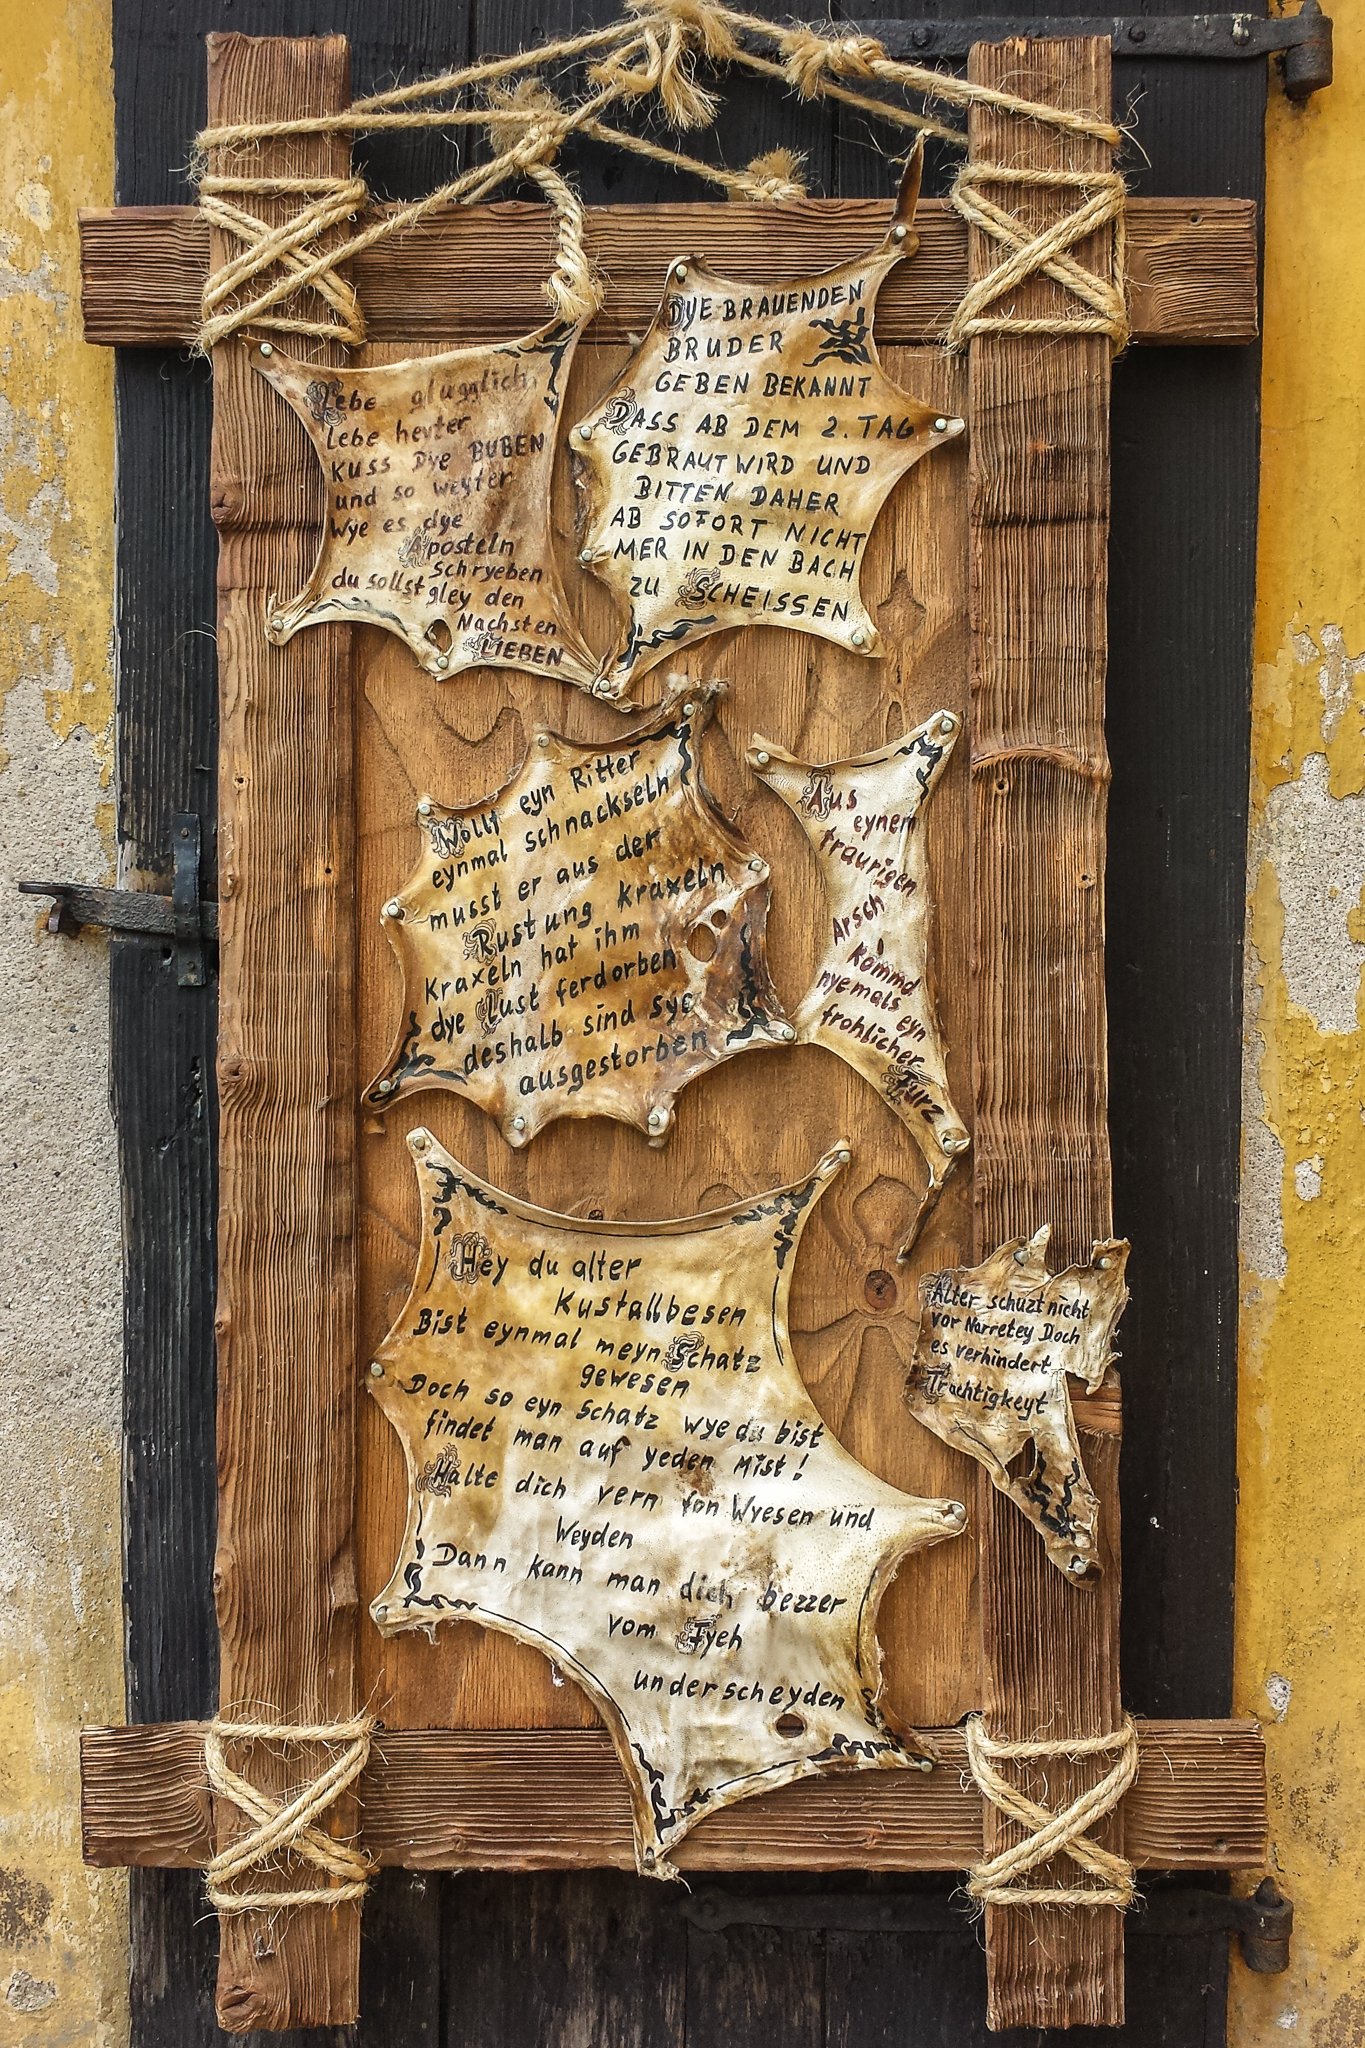 Lebe glugglich
Lebe heyter
KUSS Dye BUBEN
und so weyter
Wye es dye
Aposteln
Schryeben
du sollst gley den
Nachsten
LIEBEN
DYE BRAUENDEN
BRUDER
GEBEN BEKANNT
DASS AB DEM 2. TAG
GEBRAUT WIRD UND
BITTEN DAHER
AB SOFORT NICHT
MER IN DEN BACH
ZU SCHEISSEN
Wollt eyn Ritter
eynmal schnackseln
musst er aus der
Rustung Kraxeln
Kraxeln hat ihm
dye Lust ferdorben
deshalb sind sye
ausgestorben
Aus
eynem
traurigen
Arsch
kommd
nyemals eyn
frohlicher
Furz
Hey du alter
Kustallbesen
Bist eynmal meyn Schatz
gewesen
Doch so eyn Schatz wye du bist
findet man auf yeden Mist!
Halte dich vern fon Wyesen und
Weyden
Dann kann man dich bezzer
vom Fyeh
underscheyden
Alter schuzt nicht
vor Narretey Doch
es verhindert
Trachtigkeyt